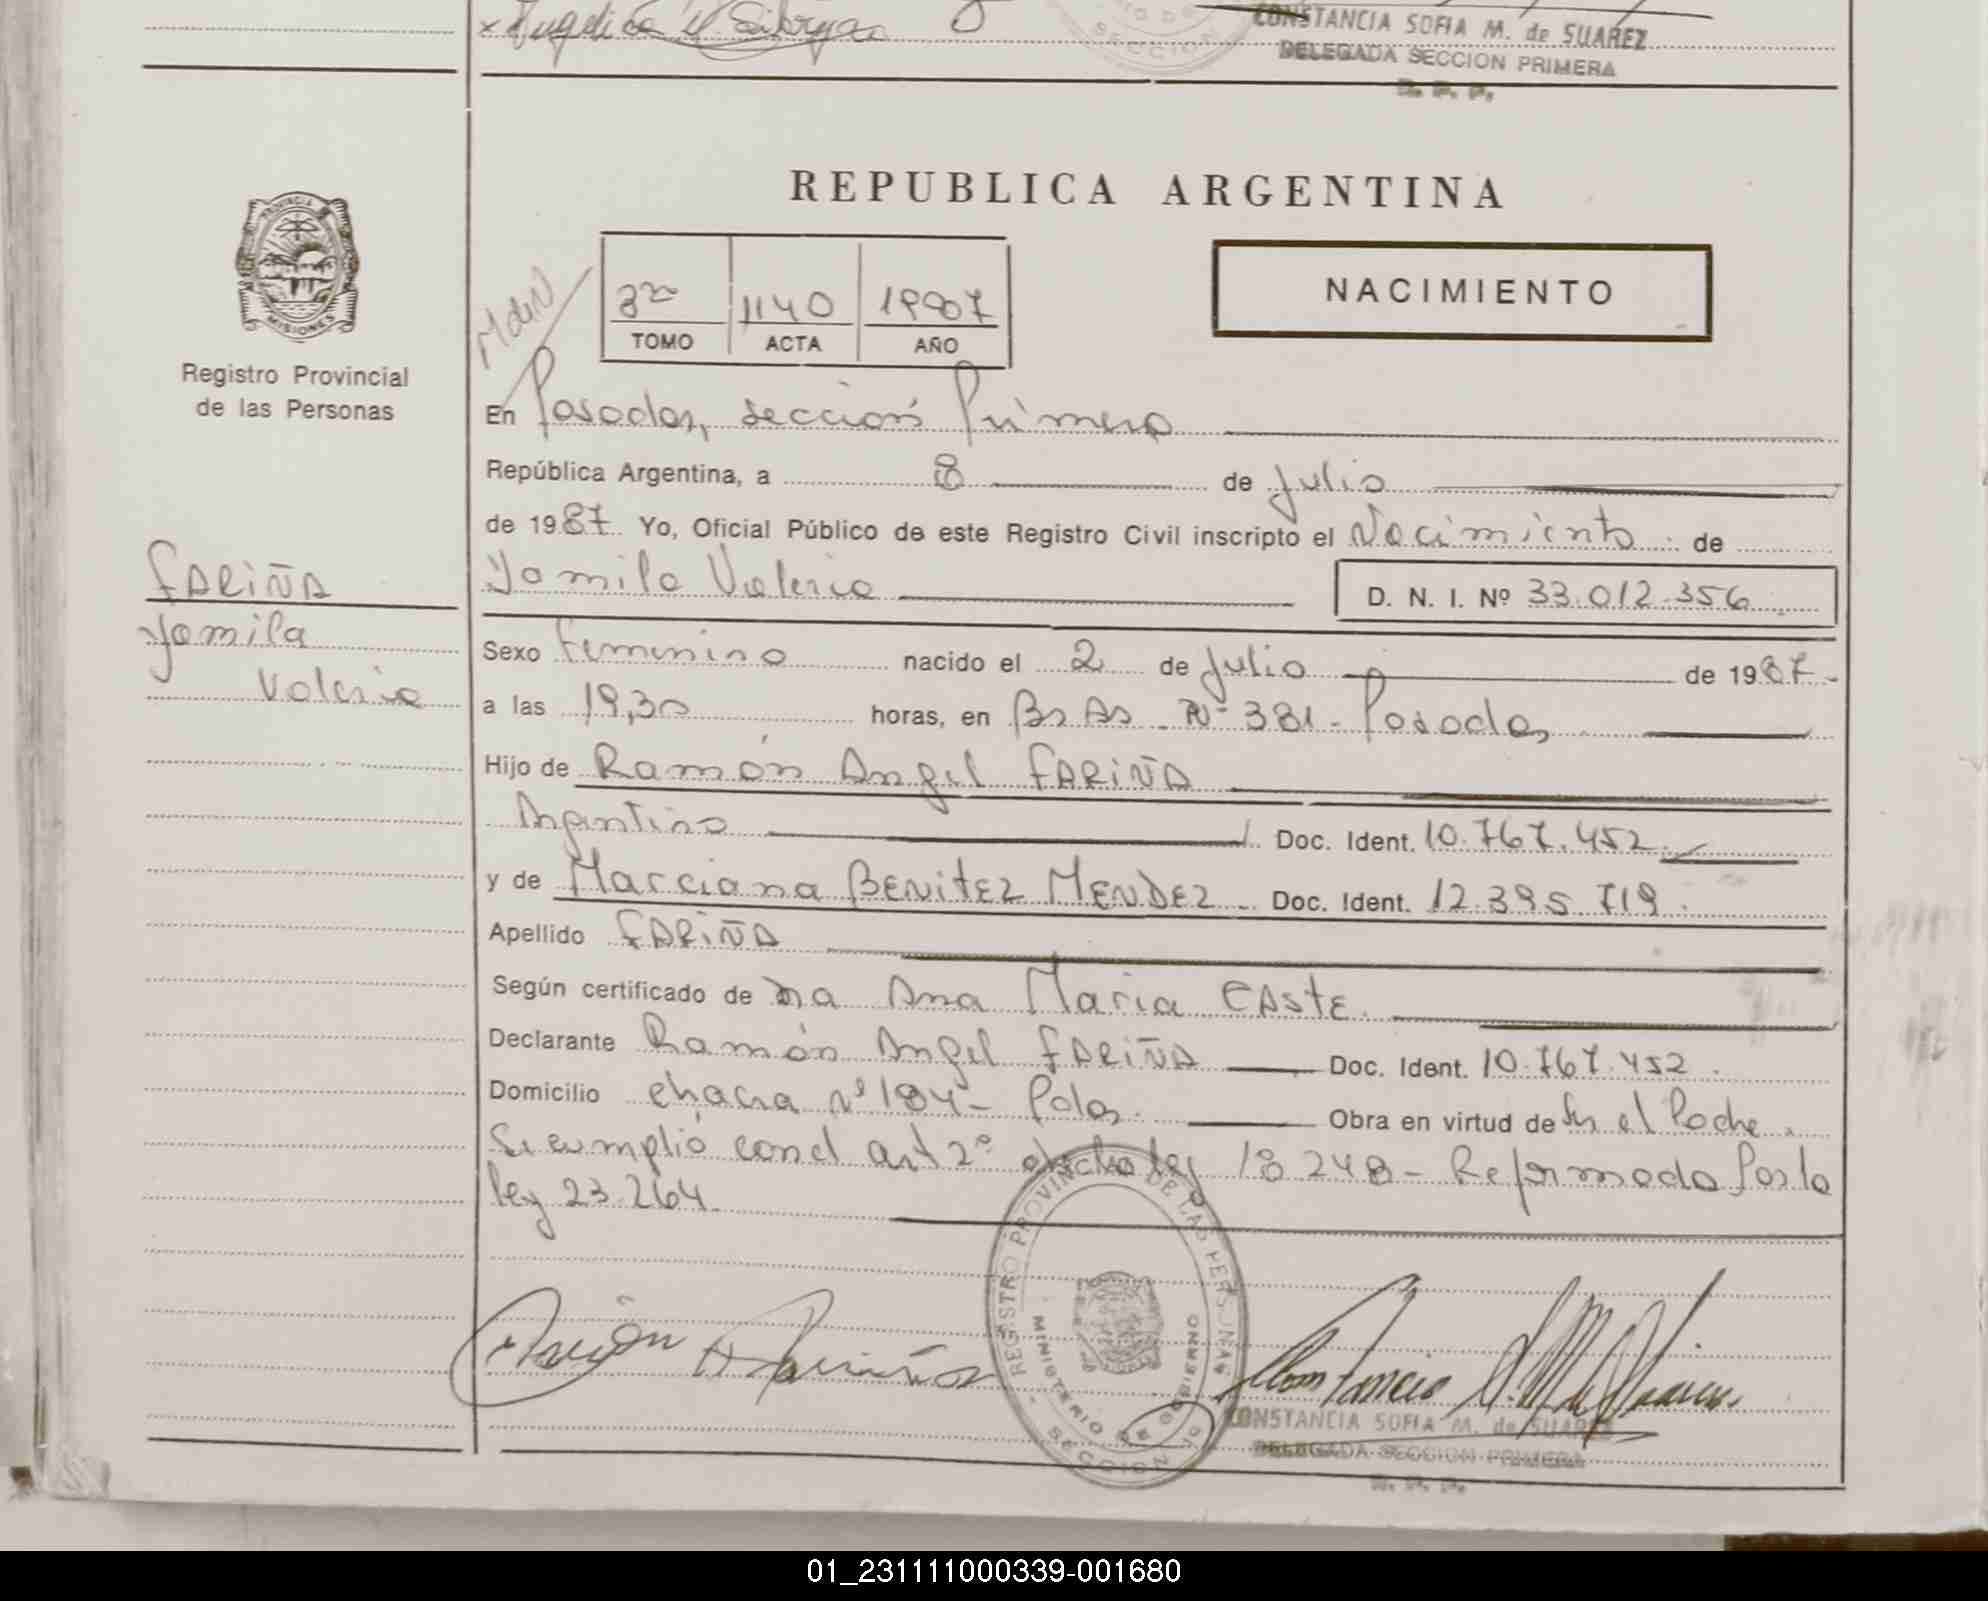 CONSTANCIA SOFIA M. de SUAREZ
DELEGADA SECCION PRIMERA
R. P. P.
PROVINCIA
MISIONES
Registro Provincial
de las Personas
FARIÑA
Yamila
Valeria
REPUBLICA ARGENTINA
3ro 1140 1987
TOMO ACTA AÑO
NACIMIENTO
En Posadas, sección Primera
República Argentina, a 8 de Julio
de 1987. Yo, Oficial Público de este Registro Civil inscripto el Nacimiento de
Yamila Valeria D. N. I. Nº 33.012.356
Sexo Femenino nacido el 2 de Julio de 1987.-
a las 19,30 horas, en Bs As Nº 381 - Posadas
Hijo de Ramón Angel FARIÑA
Argentino Doc. Ident. 10.767.452
y de Marciana BENITEZ MENDEZ Doc. Ident. 12.395.719.
Apellido FARIÑA
Según certificado de Dra Ana Maria CASTE.
Declarante Ramón Angel FARIÑA Doc. Ident. 10.767.452.
Domicilio chacra Nº 184 - Pdas. Obra en virtud de Ser el Padre.
Se cumplió con el art 2º de la ley 18.248 - Reformada Por la
ley 23.264.
REGISTRO PROVINCIAL DE LAS PERSONAS
MINISTERIO DE GOBIERNO
SECCION
CONSTANCIA SOFIA M. de SUAREZ
DELEGADA SECCION PRIMERA
R. P. P.
01_231111000339-001680